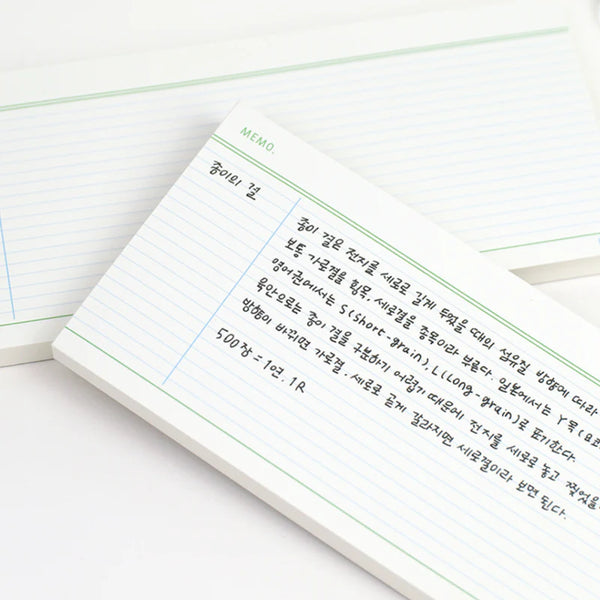 MEMO.
종이의 결
종이 결은 전지를 세로로 길게 두었을 때의 섬유질 방향에 따라
보통 가로결을 횡목, 세로결을 종목이라 부른다. 일본에서는 Y목
영어권에서는 S(short-grain), L(Long-grain)로 표기한다.
육안으로는 종이 결을 구분하기 어렵기 때문에 전지를 세로로 놓고 찢었을
방향이 바뀌면 가로결. 세로로 곧게 갈라지면 세로결이라 보면 된다.
500장 = 1연. 1R